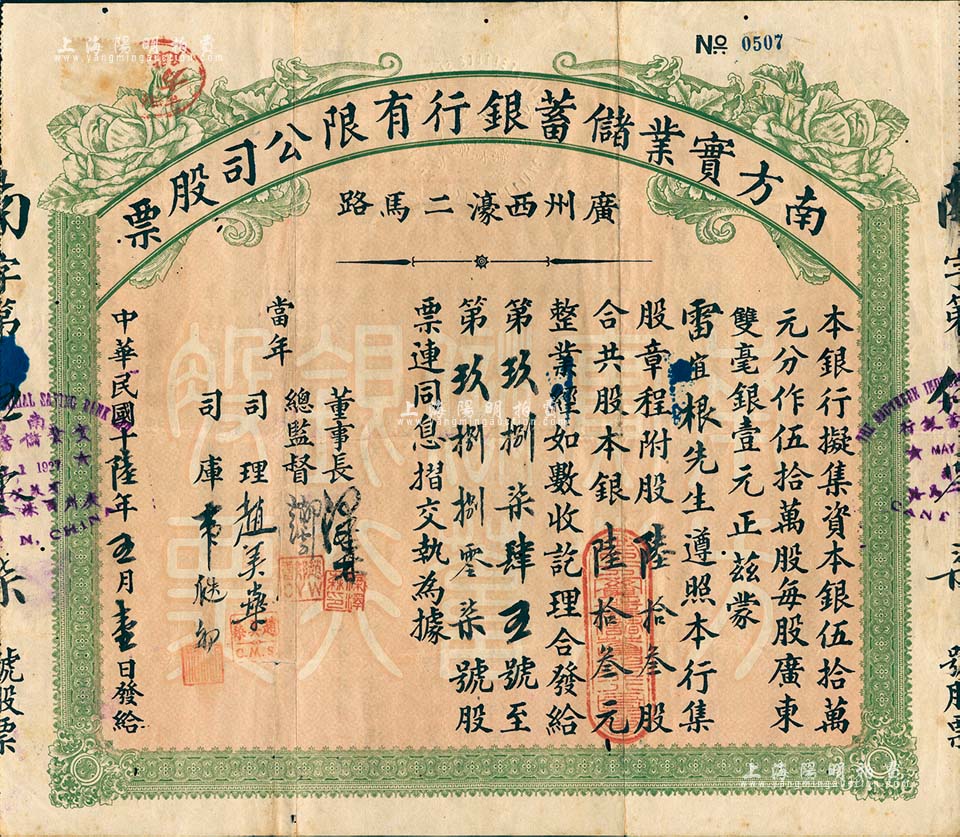 上海陽明拍賣
www.yangmingauction.com
No 0507
南方實業儲蓄銀行有限公司股票
廣州西濠二馬路
本銀行擬集資本銀伍拾萬
元分作伍拾萬股每股廣東
雙毫銀壹元正茲蒙
雷誼根先生遵照本行集
股章程附股陸拾叁股
合共股本銀陸拾叁元
整業經如數收訖理合發給
第玖捌柒肆五號至
第玖捌捌零柒號股
票連同息摺交執為據
董事長
當年
總監督
司理趙美
司庫
中華民國十陸年五月壹日發給
號股票
號股票
字第
字第
上海陽明拍賣
www.yangmingauction.com
上海陽明拍賣
www.yangmingauction.com
C.M.S.